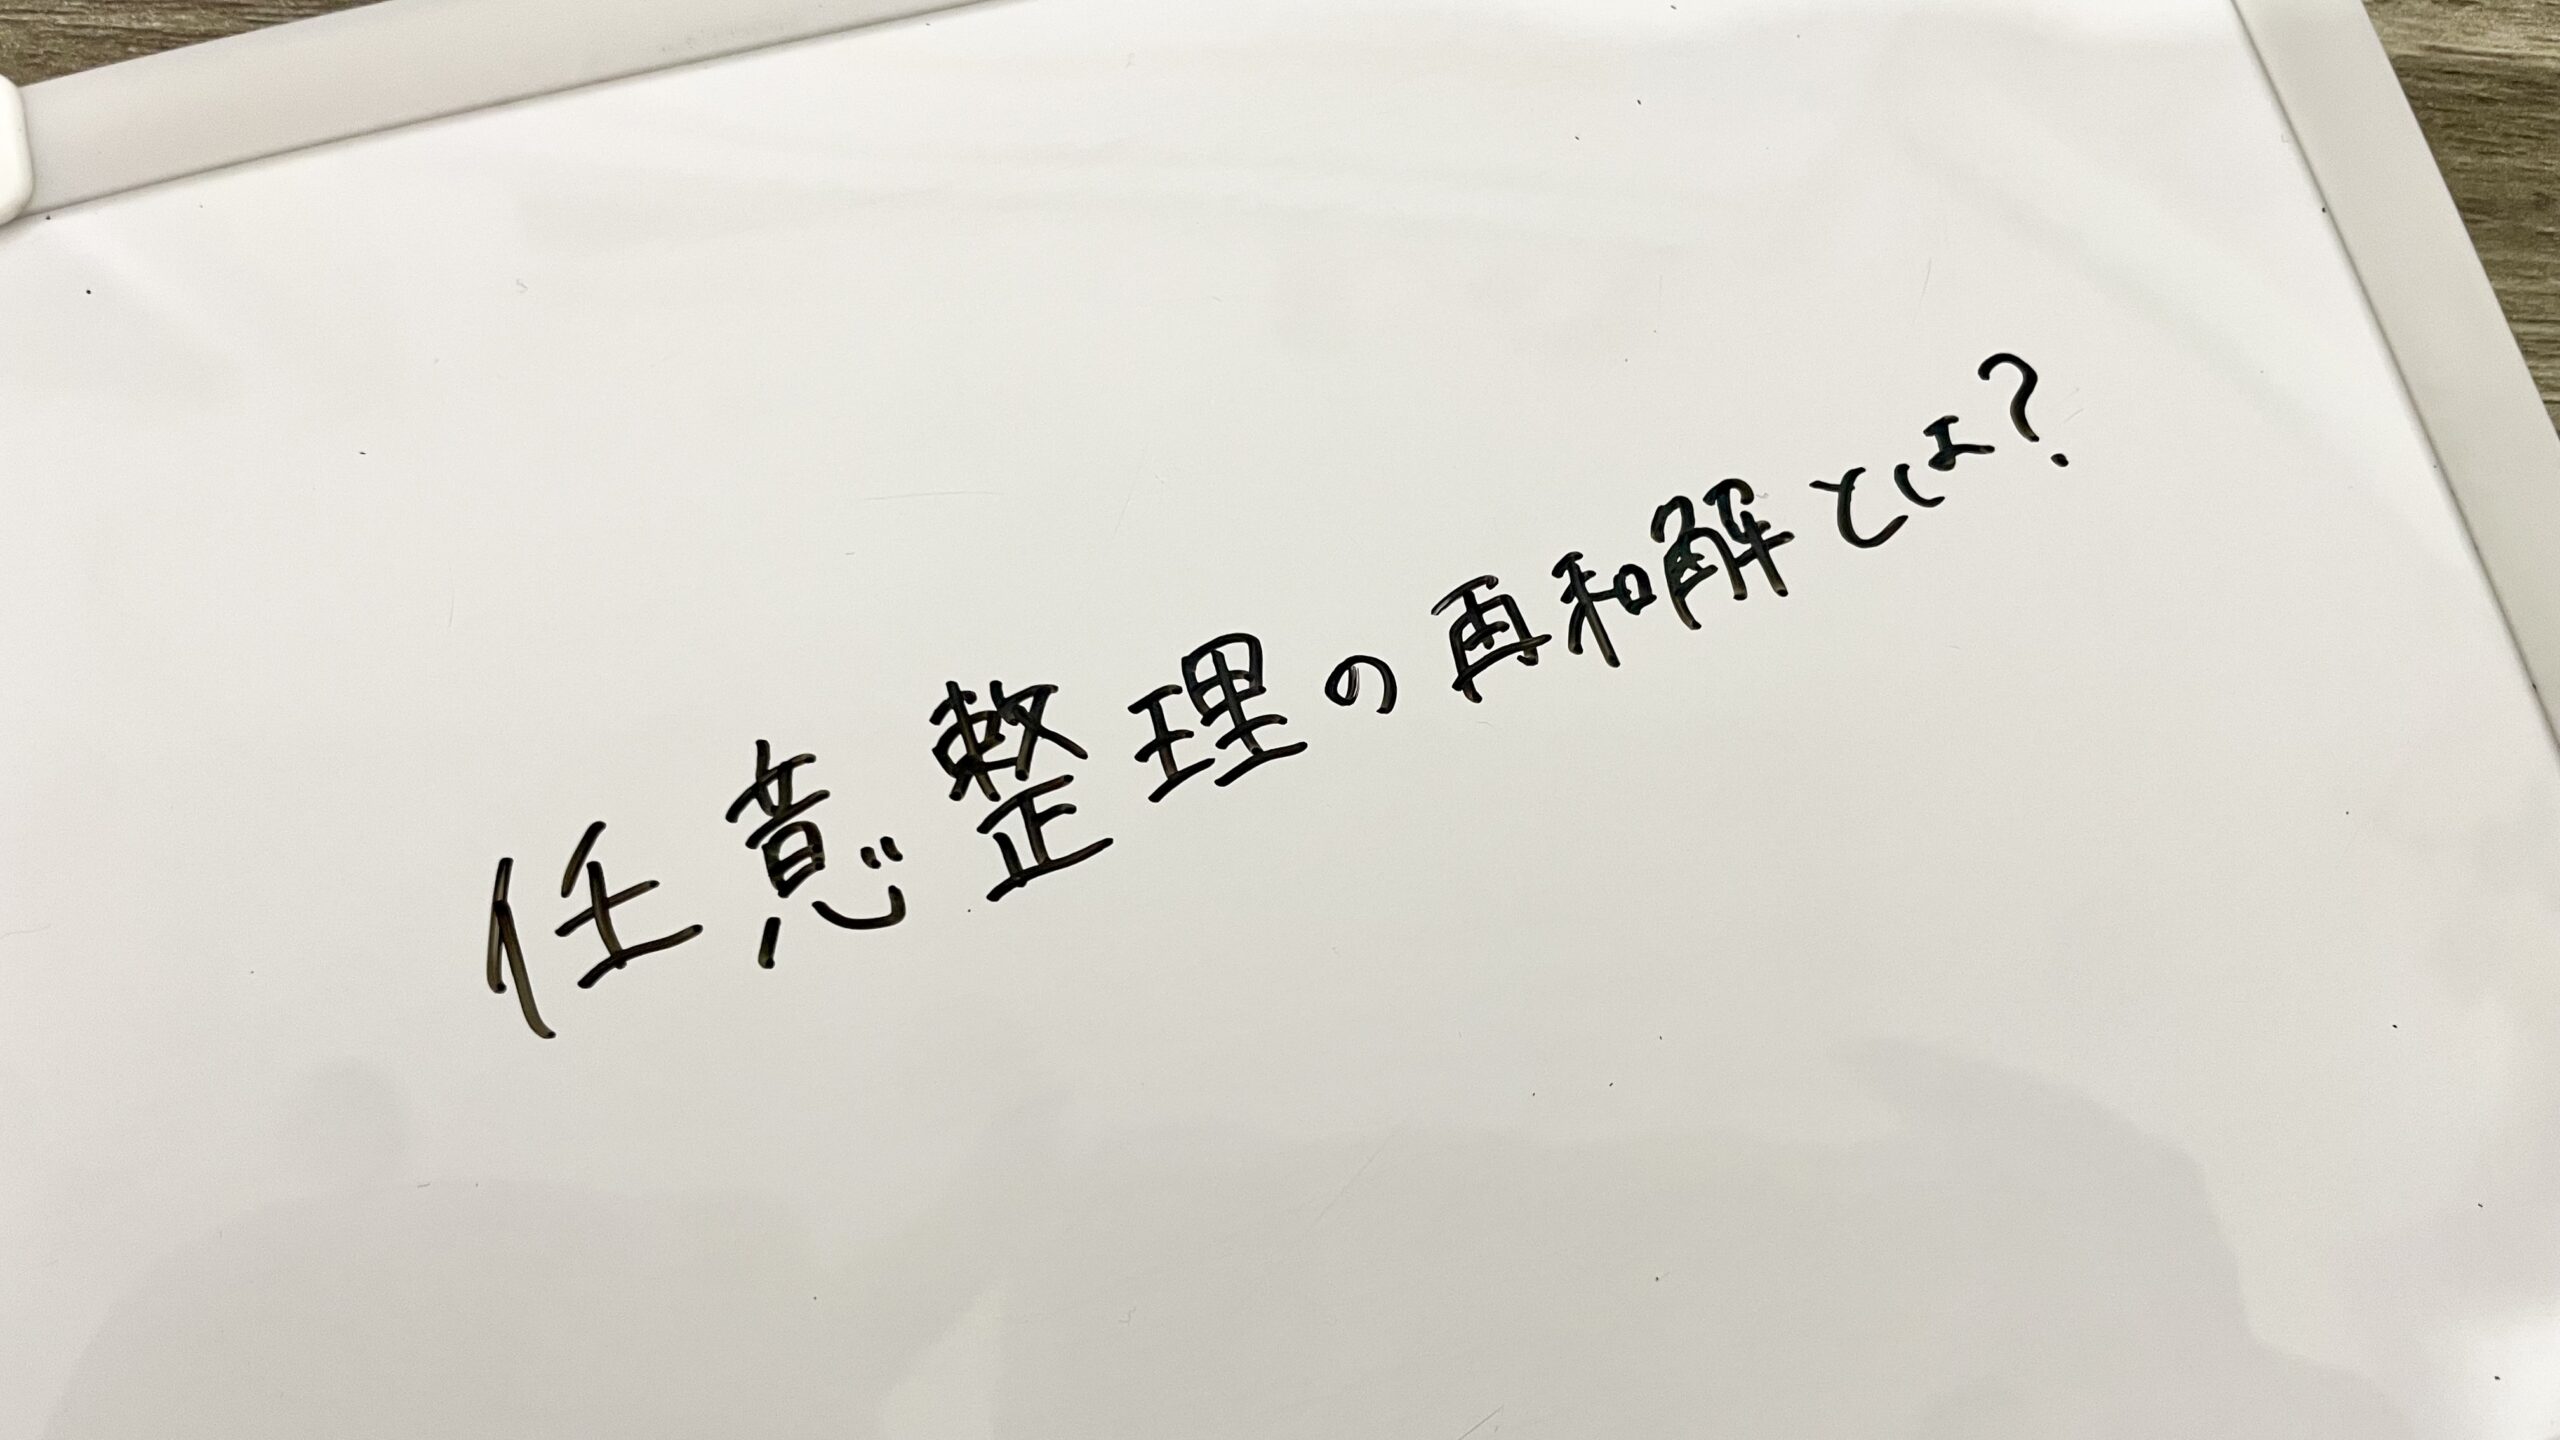 任意整理の再和解とは?